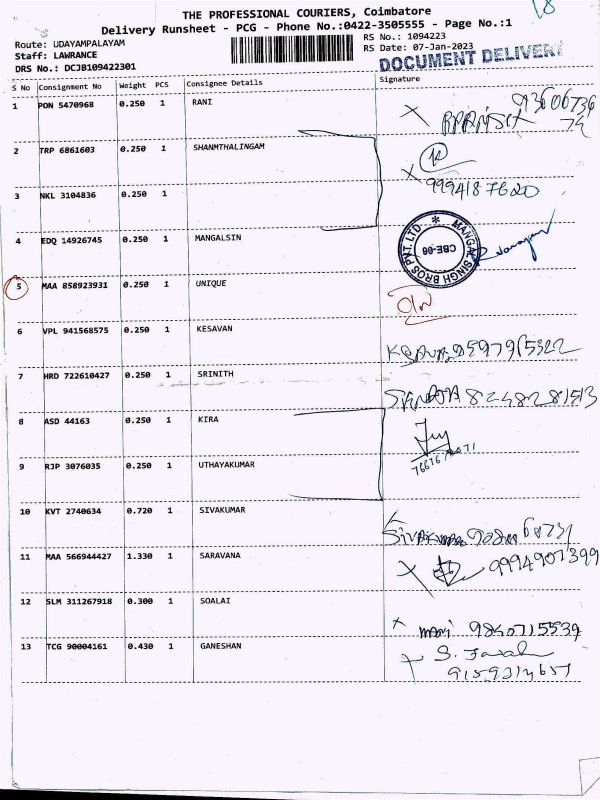 THE PROFESSIONAL COURIERS, Coimbatore
Delivery Runsheet - PCG - Phone No.:0422-3505555 - Page No.:1
Route: UDAYAMPALAYAM
Staff: LAWRANCE
DRS No.: DCJB109422301
RS No.: 1094223
RS Date: 07-Jan-2023
DOCUMENT DELIVERY
S No Consignment No Weight PCS Consignee Details Signature
1 PON 5470968 0.250 1 RANI
2 TRP 6861603 0.250 1 SHANMTHALINGAM
9994187620
3 NKL 3104836 0.250 1
4 EDQ 14926745 0.250 1 MANGALSIN
MANGAL SINGH BROS PVT. LTD. * CBE-06
5 MAA 858923931 0.250 1 UNIQUE
6 VPL 941568575 0.250 1 KESAVAN
7 HRD 722610427 0.250 1 SRINITH
8248281513
8 ASD 44163 0.250 1 KIRA
9 RJP 3076035 0.250 1 UTHAYAKUMAR
10 KVT 2740634 0.720 1 SIVAKUMAR
11 MAA 566944427 1.330 1 SARAVANA
9994907399
12 SLM 311267918 0.300 1 SOALAI
mani 9840715539
13 TCG 90004161 0.430 1 GANESHAN